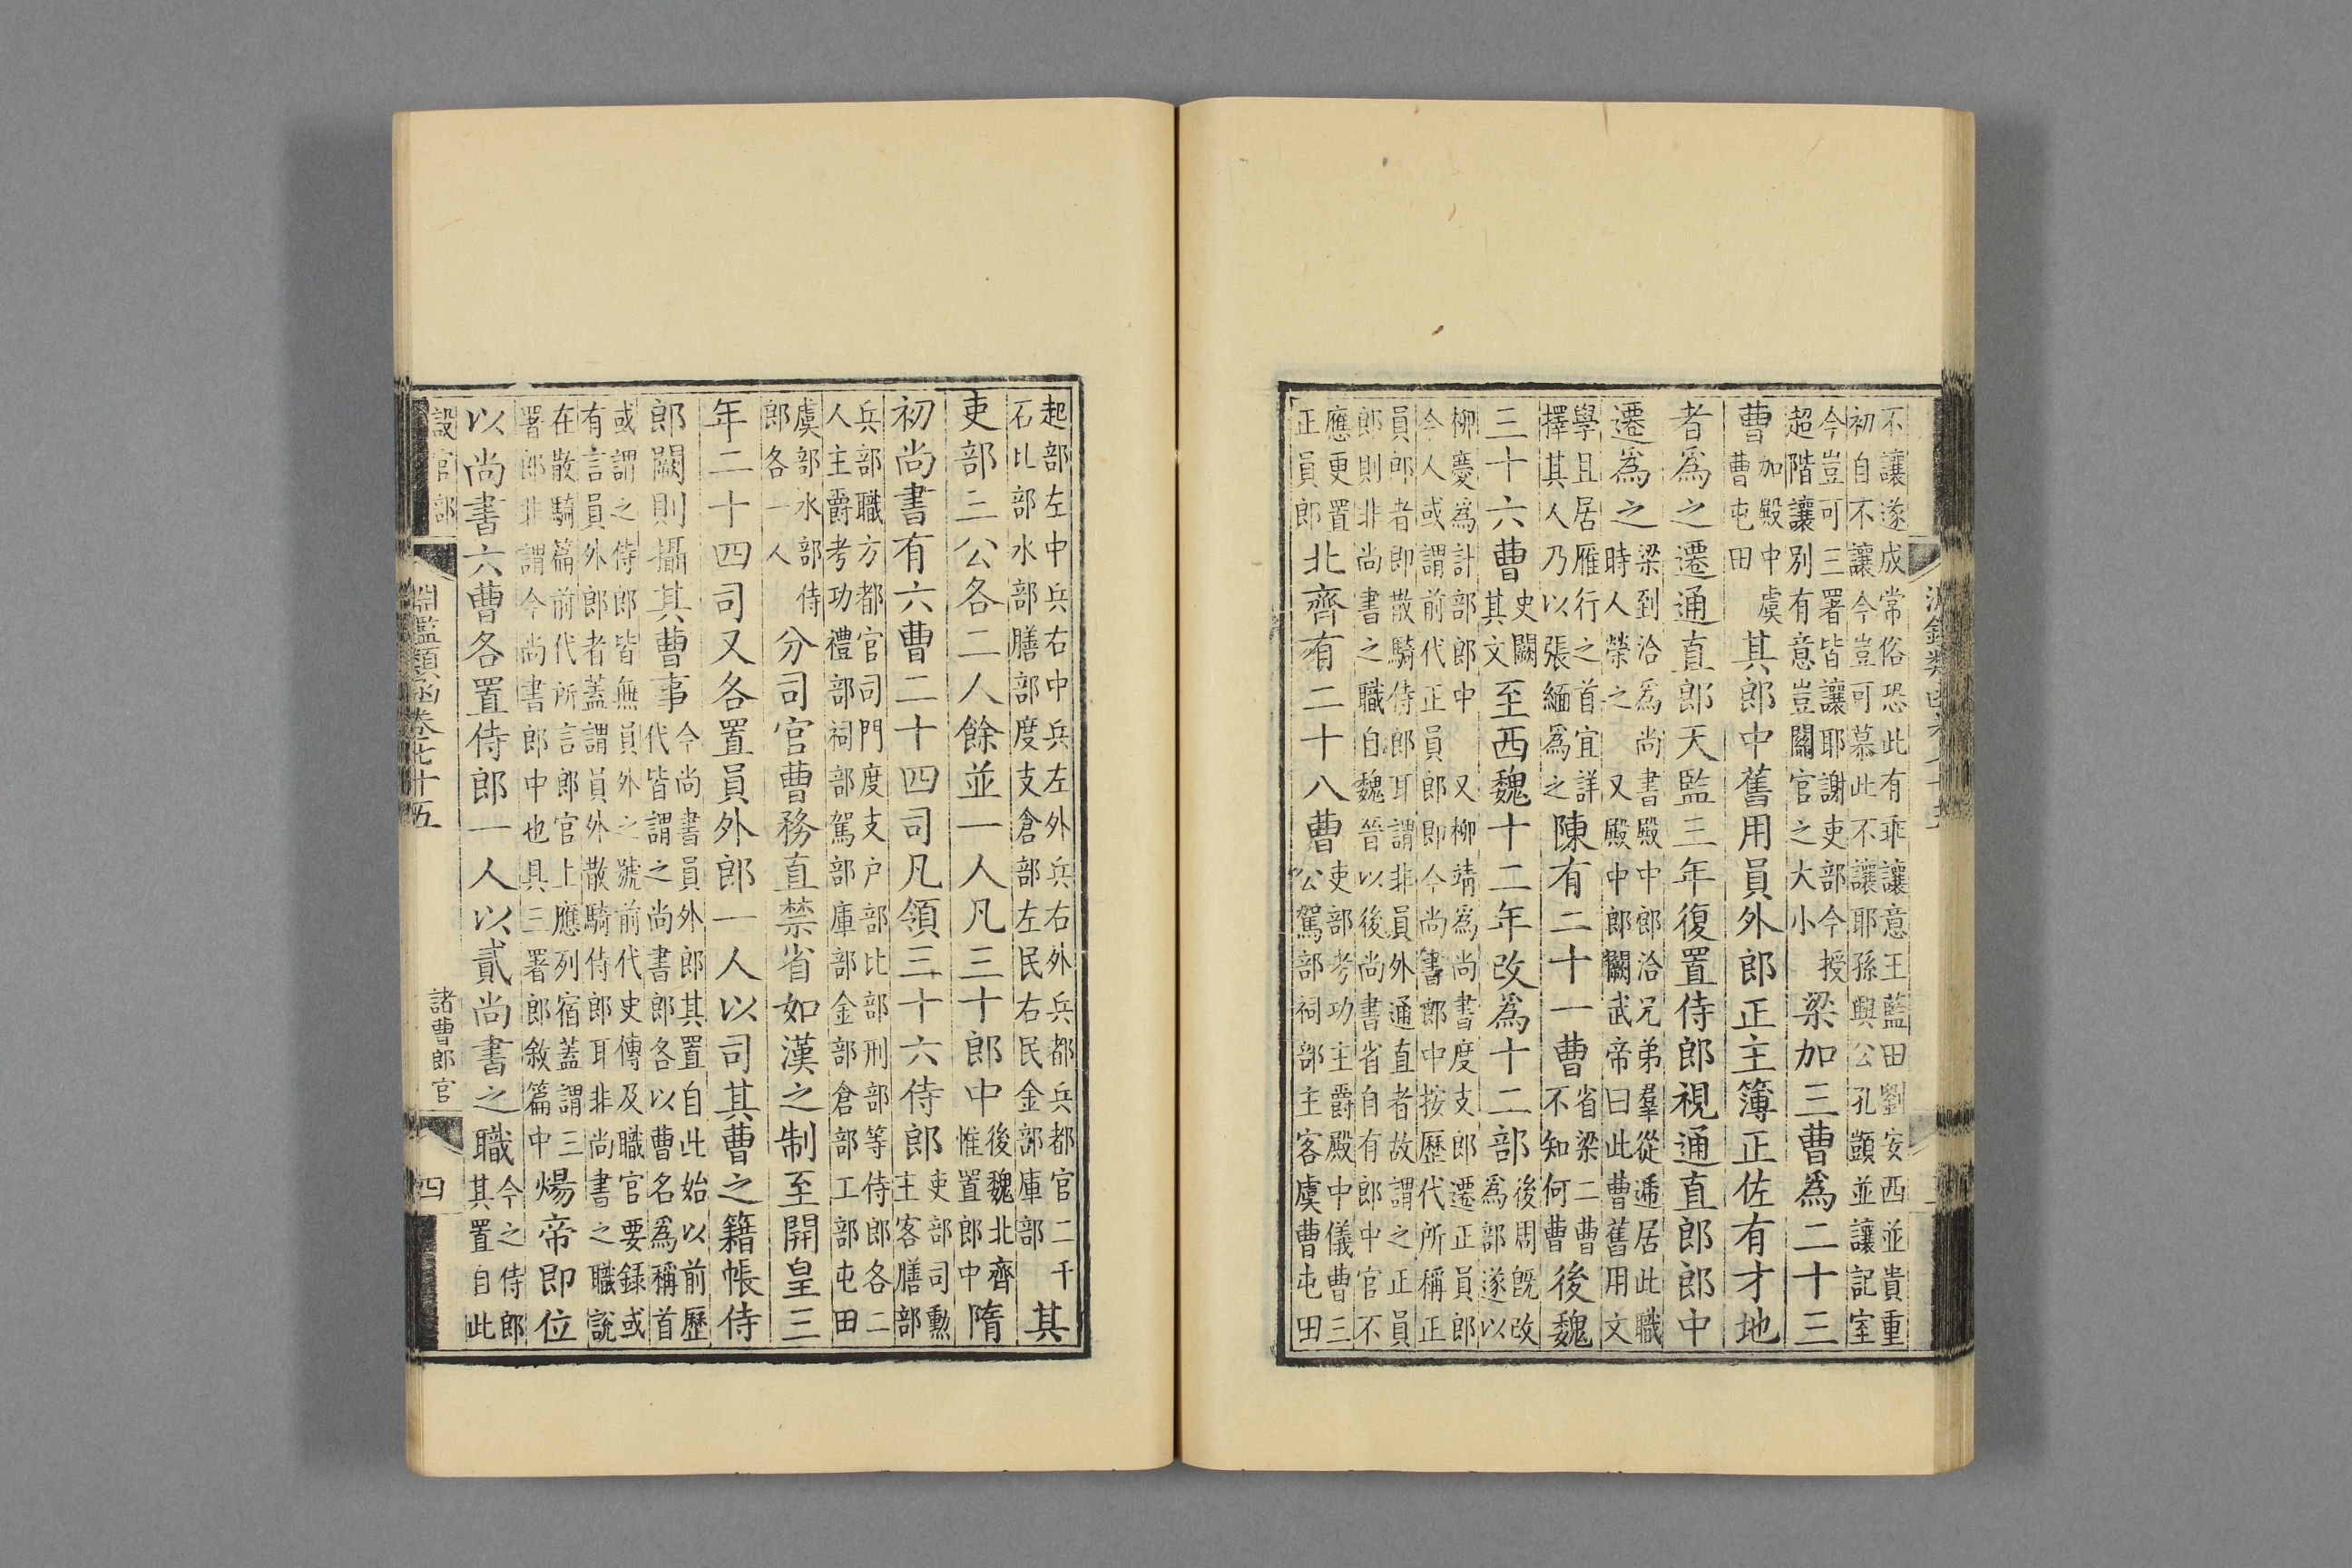 不讓遂成常俗恐此有乖讓意王藍田劉安西並貴重
初自不讓今豈可慕此不讓耶孫興公孔顗並讓記室
今豈可三署皆讓耶謝吏部今授
超階讓別有意豈關官之大小
梁加三曹爲二十三
曹
加殿中虞
曹屯田
其郎中舊用員外郎正主簿正佐有才地
者爲之遷通直郎天監三年復置侍郎視通直郎郎中
遷爲之
梁到洽爲尚書殿中郎洽兄弟羣從遞居此職
時人榮之又殿中郎闕武帝曰此曹舊用文
學且居雁行之首宜詳
擇其人乃以張緬爲之
陳有二十一曹
省梁二曹
不知何曹
後魏
三十六曹
史闕
其文
至西魏十二年改爲十二部
後周旣改
爲部遂以
柳慶爲計部郎中又柳靖爲尚書度支郎遷正員郎
今人或謂前代正員郎即今尚書郎中按歷代所稱正
員郎者即散騎侍郎耳謂非員外通直者故謂之正員
郎則非尚書之職自魏晉以後尚書省自有郎中官不
應更置
正員郎
北齊有二十八曹
吏部考功主爵殿中儀曹三
公駕部祠部主客虞曹屯田
起部左中兵右中兵左外兵右外兵都兵都官二千
石比部水部膳部度支倉部左民右民金部庫部
其
吏部三公各二人餘並一人凡三十郎中
後魏北齊
惟置郎中
隋
初尚書有六曹二十四司凡領三十六侍郎
吏部司勳
主客膳部
兵部職方都官司門度支户部比部刑部等侍郎各二
人主爵考功禮部祠部駕部庫部金部倉部工部屯田
虞部水部侍
郎各一人
分司官曹務直禁省如漢之制至開皇三
年二十四司又各置員外郎一人以司其曹之籍帳侍
郎闕則攝其曹事
今尚書員外郎其置自此始以前歷
代皆謂之尚書郎各以曹名爲稱首
或謂之侍郎皆無員外之號前代史傳及職官要録或
有言員外郎者蓋謂員外散騎侍郎耳非尚書之職說
在散騎篇前代所言郎官上應列宿蓋謂三
署郎非謂今尚書郎中也具三署郎敘篇中
煬帝即位
以尚書六曹各置侍郎一人以貳尚書之職
今之侍郎
其置自此
設官部
淵鑑類函卷七十五
諸曹郎官
四